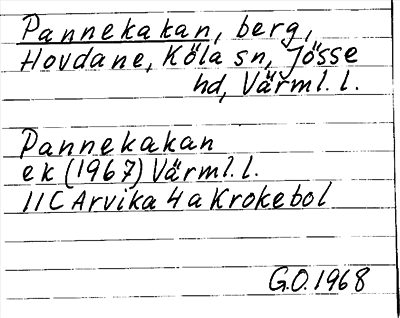 Pannekakan, berg,
Hovdane, Köla sn, Jösse
hd, Värml. l.
Pannekakan
ek (1967) Värml. l.
11C Arvika 4a Krokebol
G.O. 1968